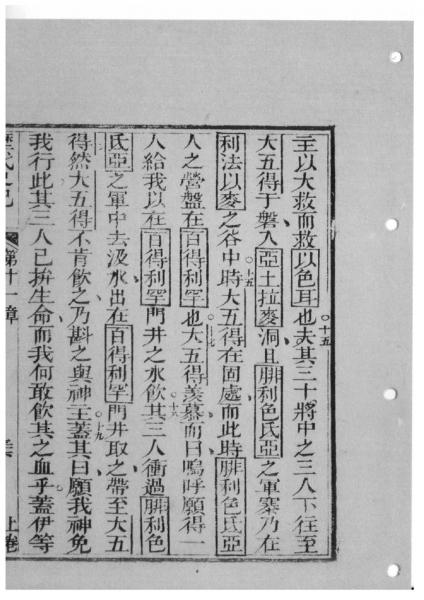 主以大救而救以色耳也夫其三十將中之三人下往至
十五
大五得于磐入亞土拉麥洞且腓利色氏亞之軍寨乃在
利法以麥之谷中時大五得在固處而此時腓利色氏亞
十六
人之營盤在百得利罕也大五得羨慕而曰嗚呼願得一
十七
人給我以在百得利罕門井之水飲其三人衝過腓利色
十八
氏亞之軍中去汲水出在百得利罕門井取之帶至大五
得然大五得不肯飲之乃斟之與神主蓋其曰願我神免
十九
我行此其三人已拚生命而我何敢飲其之血乎蓋伊等
歷代之紀 第十一章 上卷